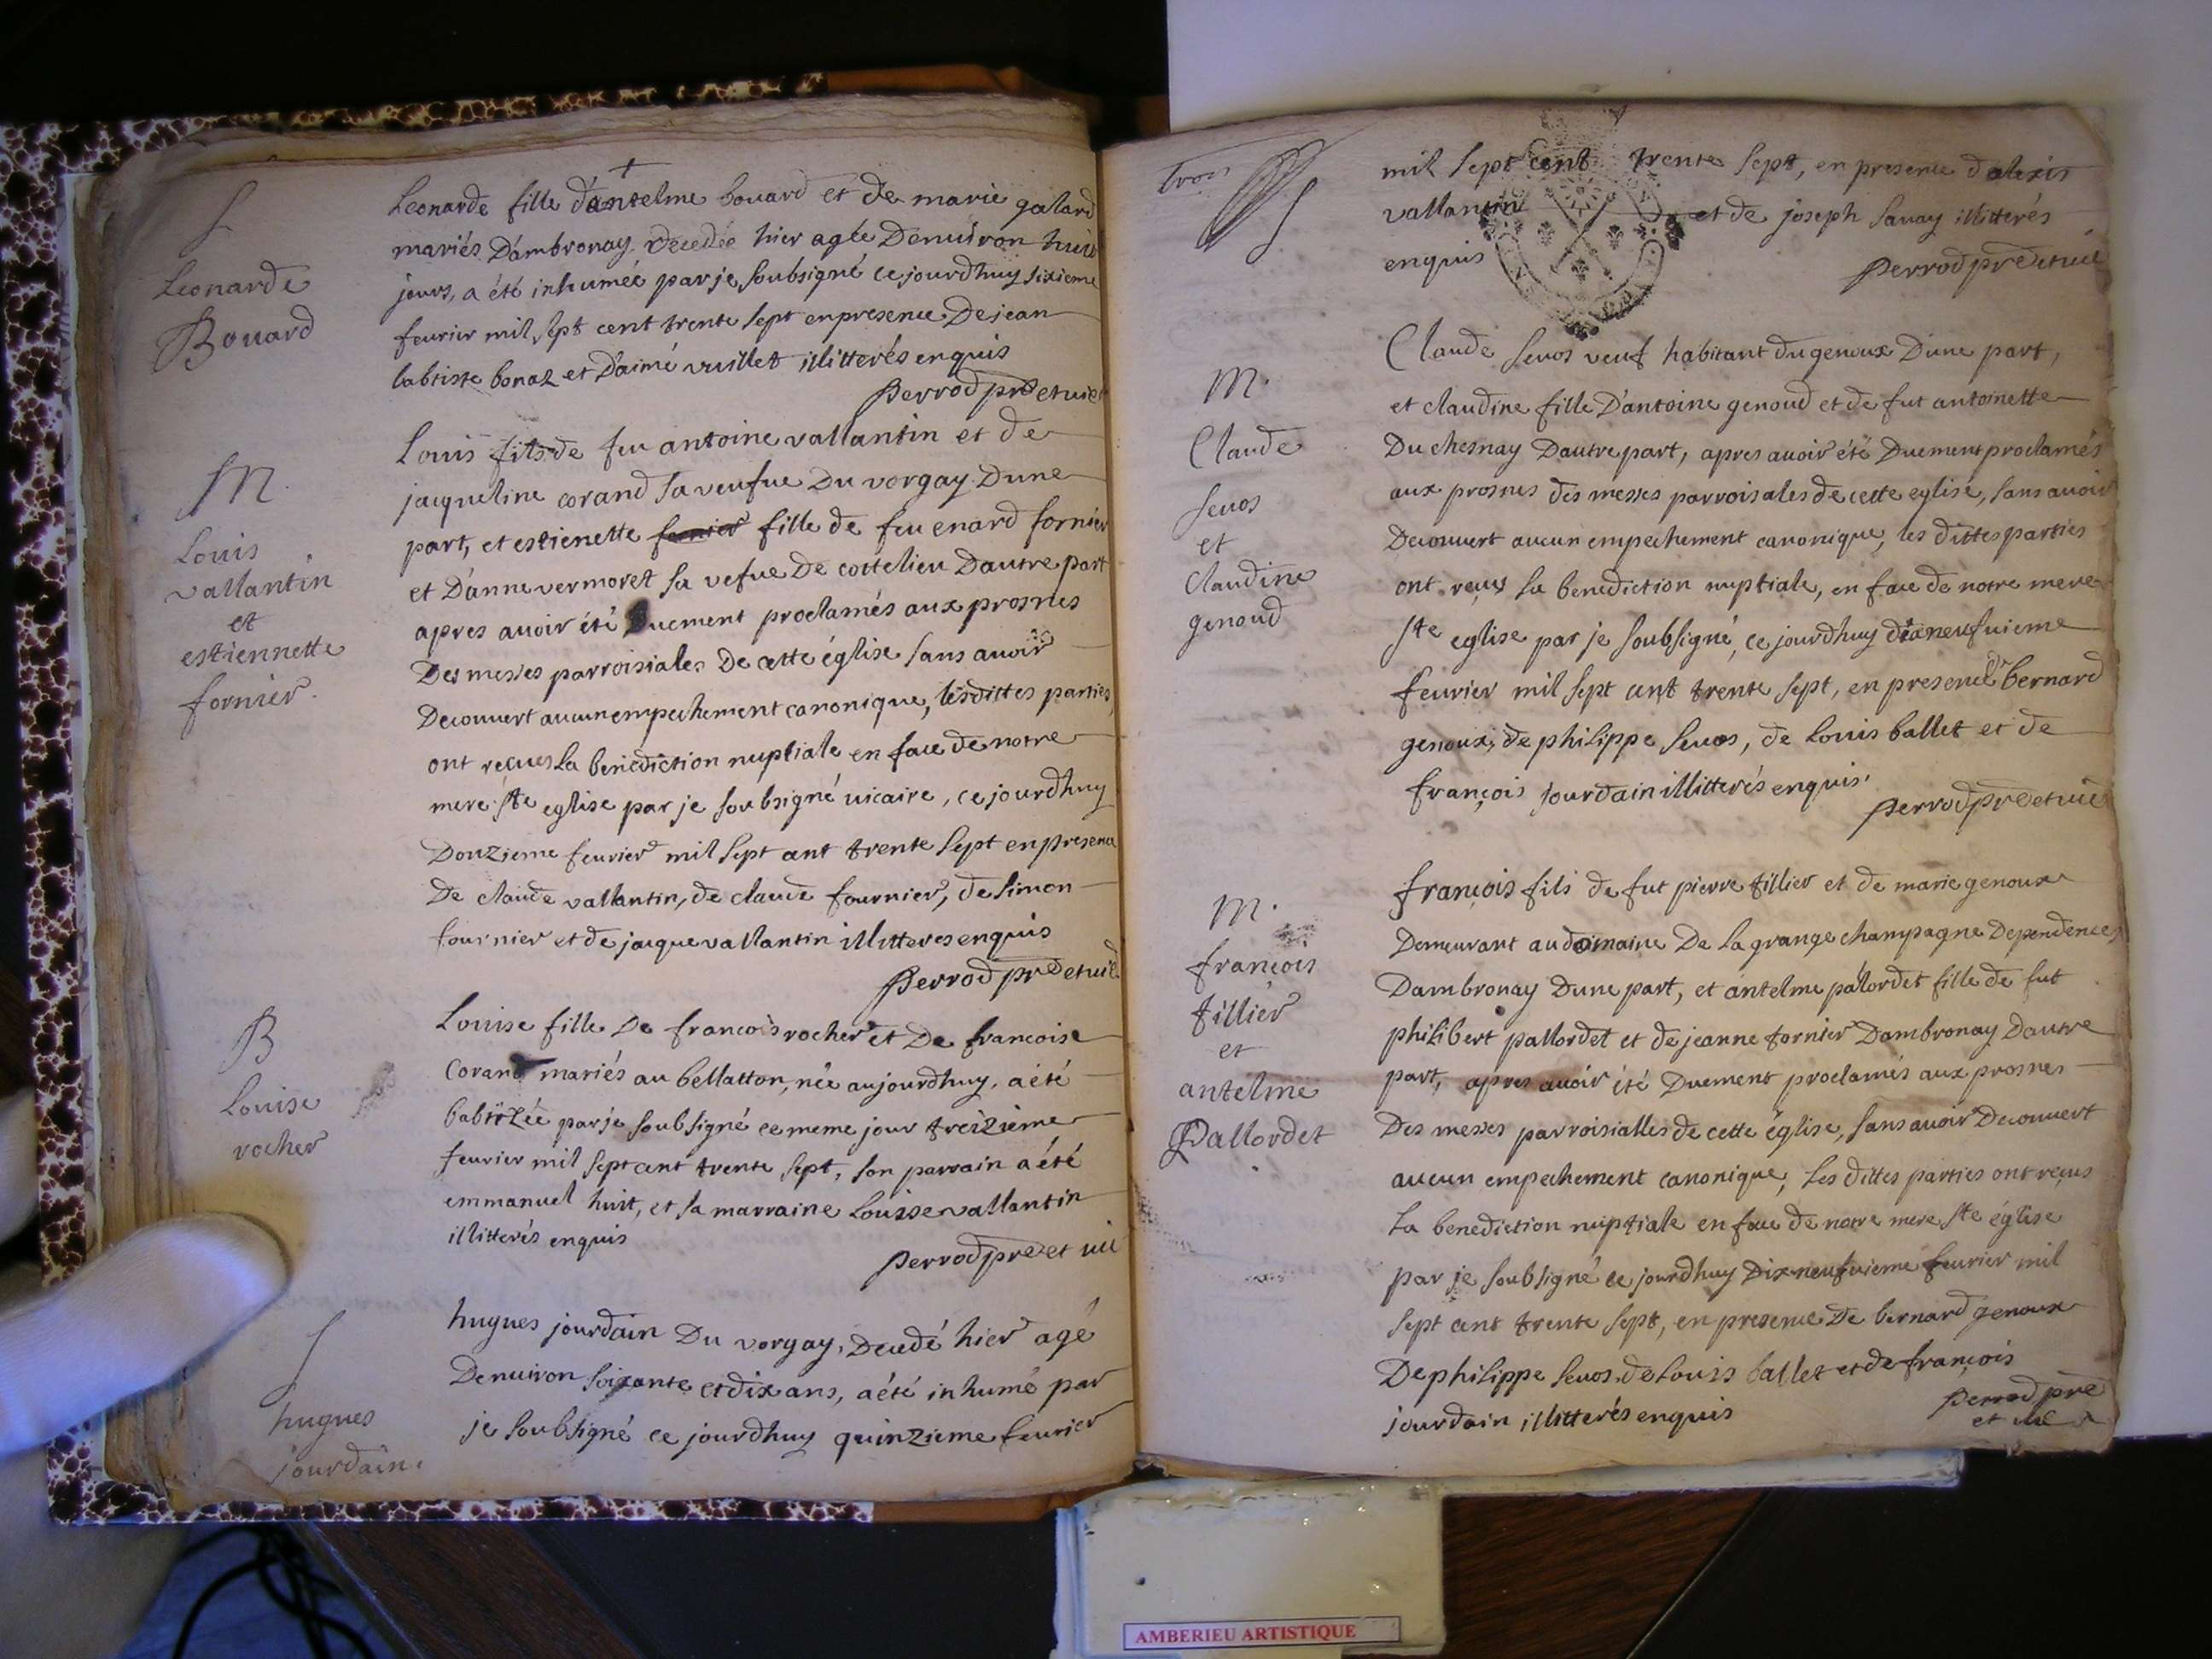 S
Leonarde
Bouard
Leonarde fille d'antelme bouard et de marie galard
mariés D'ambronay decedée hier agée Denuiron huit
jours, a été inhumée par je soubsigné ce jourdhuy sixieme
feurier mil sept cent trente sept en presence De jean
babtiste bonaz et D'aimé vuillet illitterés enquis
Perrod pre et uic
M.
Louis
vallantin
et
estiennette
fornier.
Louis fils de feu antoine vallantin et de
jacqueline corand sa veufue Du vorgay Dune
part, et estienette fille de feu enard fornier
et D'anne vermoret sa vefue De cottelieu Dautre part
apres auoir été Duement proclamés aux prosnes
Des messes parroisiales De cette église sans auoir
Decouuert aucun empechement canonique, lesdittes parties
ont reçues la benediction nuptiale en face de notre
mere ste eglise par je soubsigné uicaire, ce jourdhuy
Douzieme feurier mil sept cent trente sept en presence
De claude vallantin, de claude fournier, de simon
fournier et de jacque vallantin illitteres enquis
Perrod pre et uic
B
Louise
rocher
Louise fille De francois rocher et De francoise
Corand mariés au bellatton, née aujourdhuy, a été
babtizée par je soubsigné ce meme jour treizieme
feurier mil sept cent trente sept, son parrain a été
emmanuel huit, et sa marraine Louisse vallantin
illitterés enquis
Perrod pre et uic
S
hugues
jourdain.
hugues jourdain Du vorgay, Decedé hier agé
Denuiron soixante et dix ans, a été inhumé par
je soubsigné ce jourdhuy quinzieme feurier
trois
mil sept cent trente sept, en presence d'alexis
vallantin et de joseph sauay illitterés
enquis
Perrod pre et uic
M.
Claude
seuos
et
Claudine
genoud
Claude seuos veuf habitant du genoux Dune part,
et claudine fille D'antoine genoud et de fut antoinette
Duchesnay Dautre part, apres auoir été Duement proclamés
aux prosnes des messes parroisales de cette eglise, sans auoir
Decouuert aucun empechement canonique, les dittes parties
ont reçus la benediction nuptiale, en face de notre mere
ste eglise par je soubsigné, ce jourdhuy dixneufuieme
feurier mil sept cent trente sept, en presence de bernard
genoux, de philippe seuos, de Louis ballet et de
françois jourdain illitterés enquis.
Perrod pre et uic
M.
françois
tillier
et
antelme
Pallordet
françois fils de fut pierre tillier et de marie genoux
Demeurant au domaine De la grange champagne Dependences
Dambronay Dune part, et antelme palordet fille de fut
philibert pallordet et de jeanne tornier Dambronay Dautre
part, apres auoir été Duement proclamés aux prosnes
Des messes parroisialles de cette église, sans auoir Decouuert
aucun empechement canonique, Les dittes parties ont reçus
La benediction nuptiale en face de notre mere ste église
par je soubsigné ce jourdhuy Dixneufuieme feurier mil
sept cent trente sept, en presence De bernard genoux
De philippe seuos, de Louis ballet et de françois
jourdain illitterés enquis
Perrod pre
et uic
AMBERIEU ARTISTIQUE